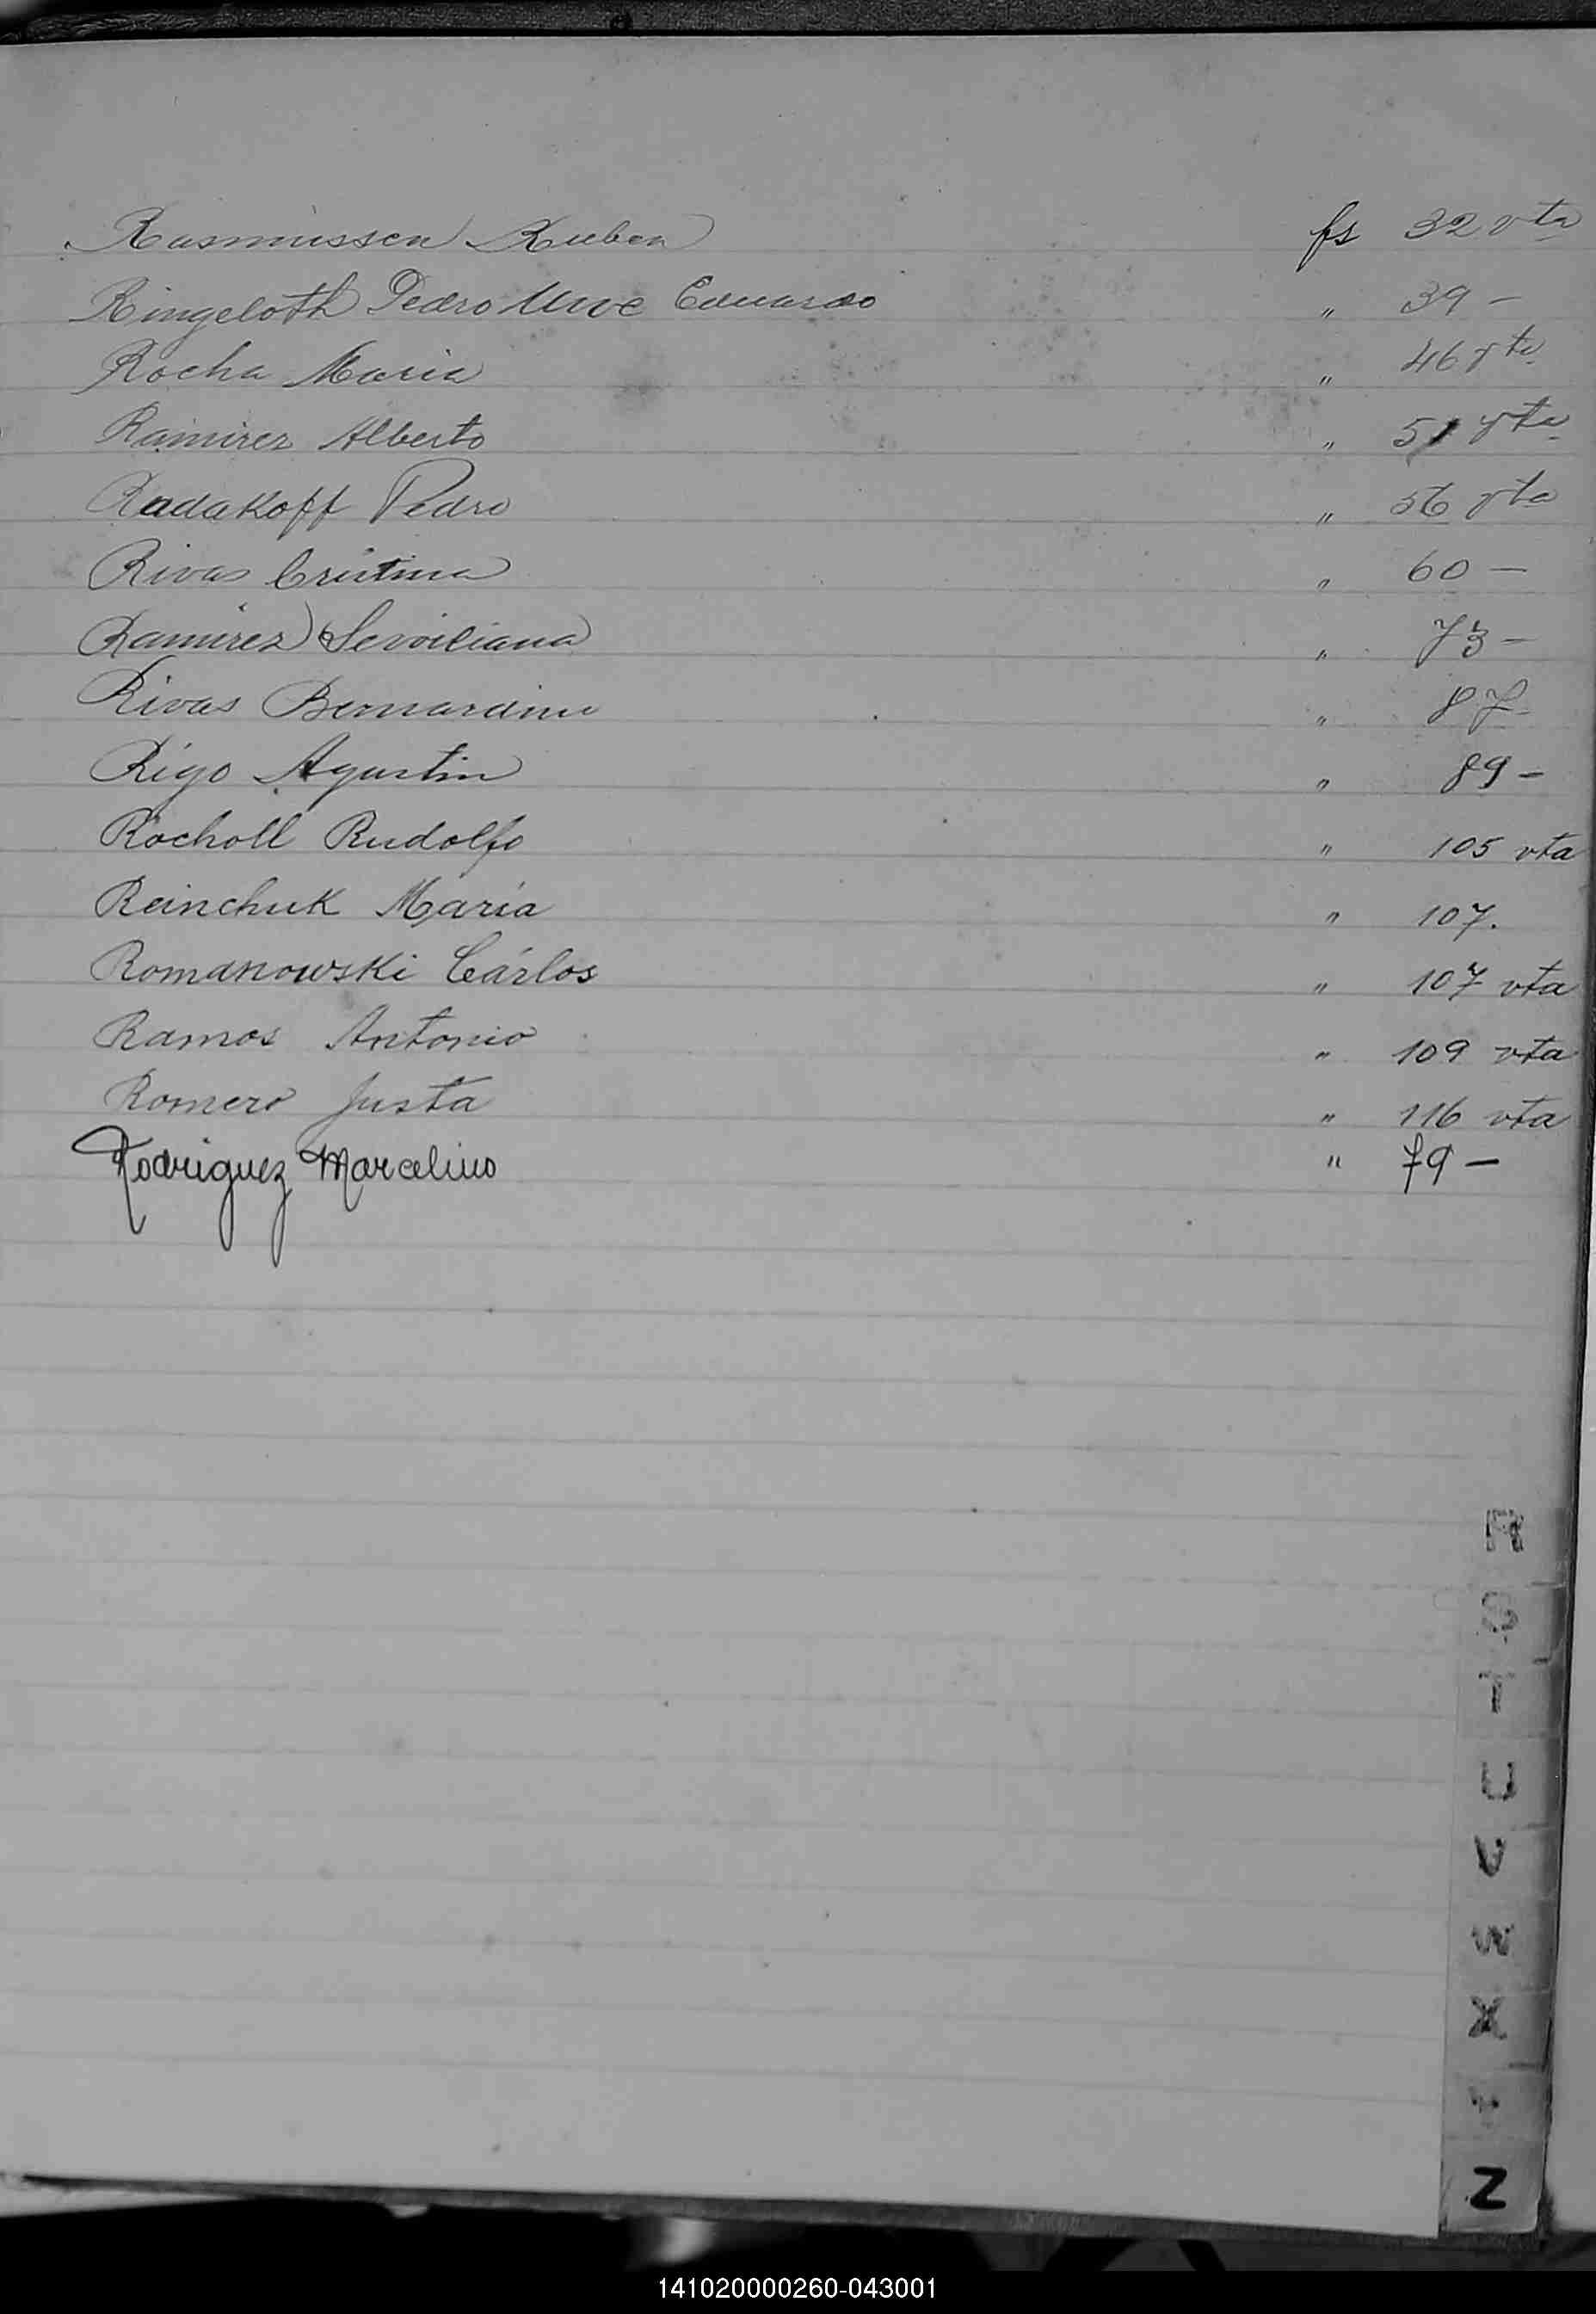 Rasmussen Ruben fs 32 vta
Ringeloth Pedro Uwe Eduardo " 39 -
Rocha Maria " 46 vta
Ramirez Alberto " 51 vta
Radakoff Pedro " 56 vta
Rivas Cristina " 60 -
Ramirez Serviliana " 73 -
Rivas Bernardino " 87
Rigo Agustin " 89 -
Rocholl Rudolfo " 105 vta
Reinchuk María " 107.
Romanowski Cárlos " 107 vta
Ramos Antonio " 109 vta
Romero Justa " 116 vta
Rodriguez Marcelino " 79 -
R
S
T
U
V
W
X
Y
Z
141020000260-043001